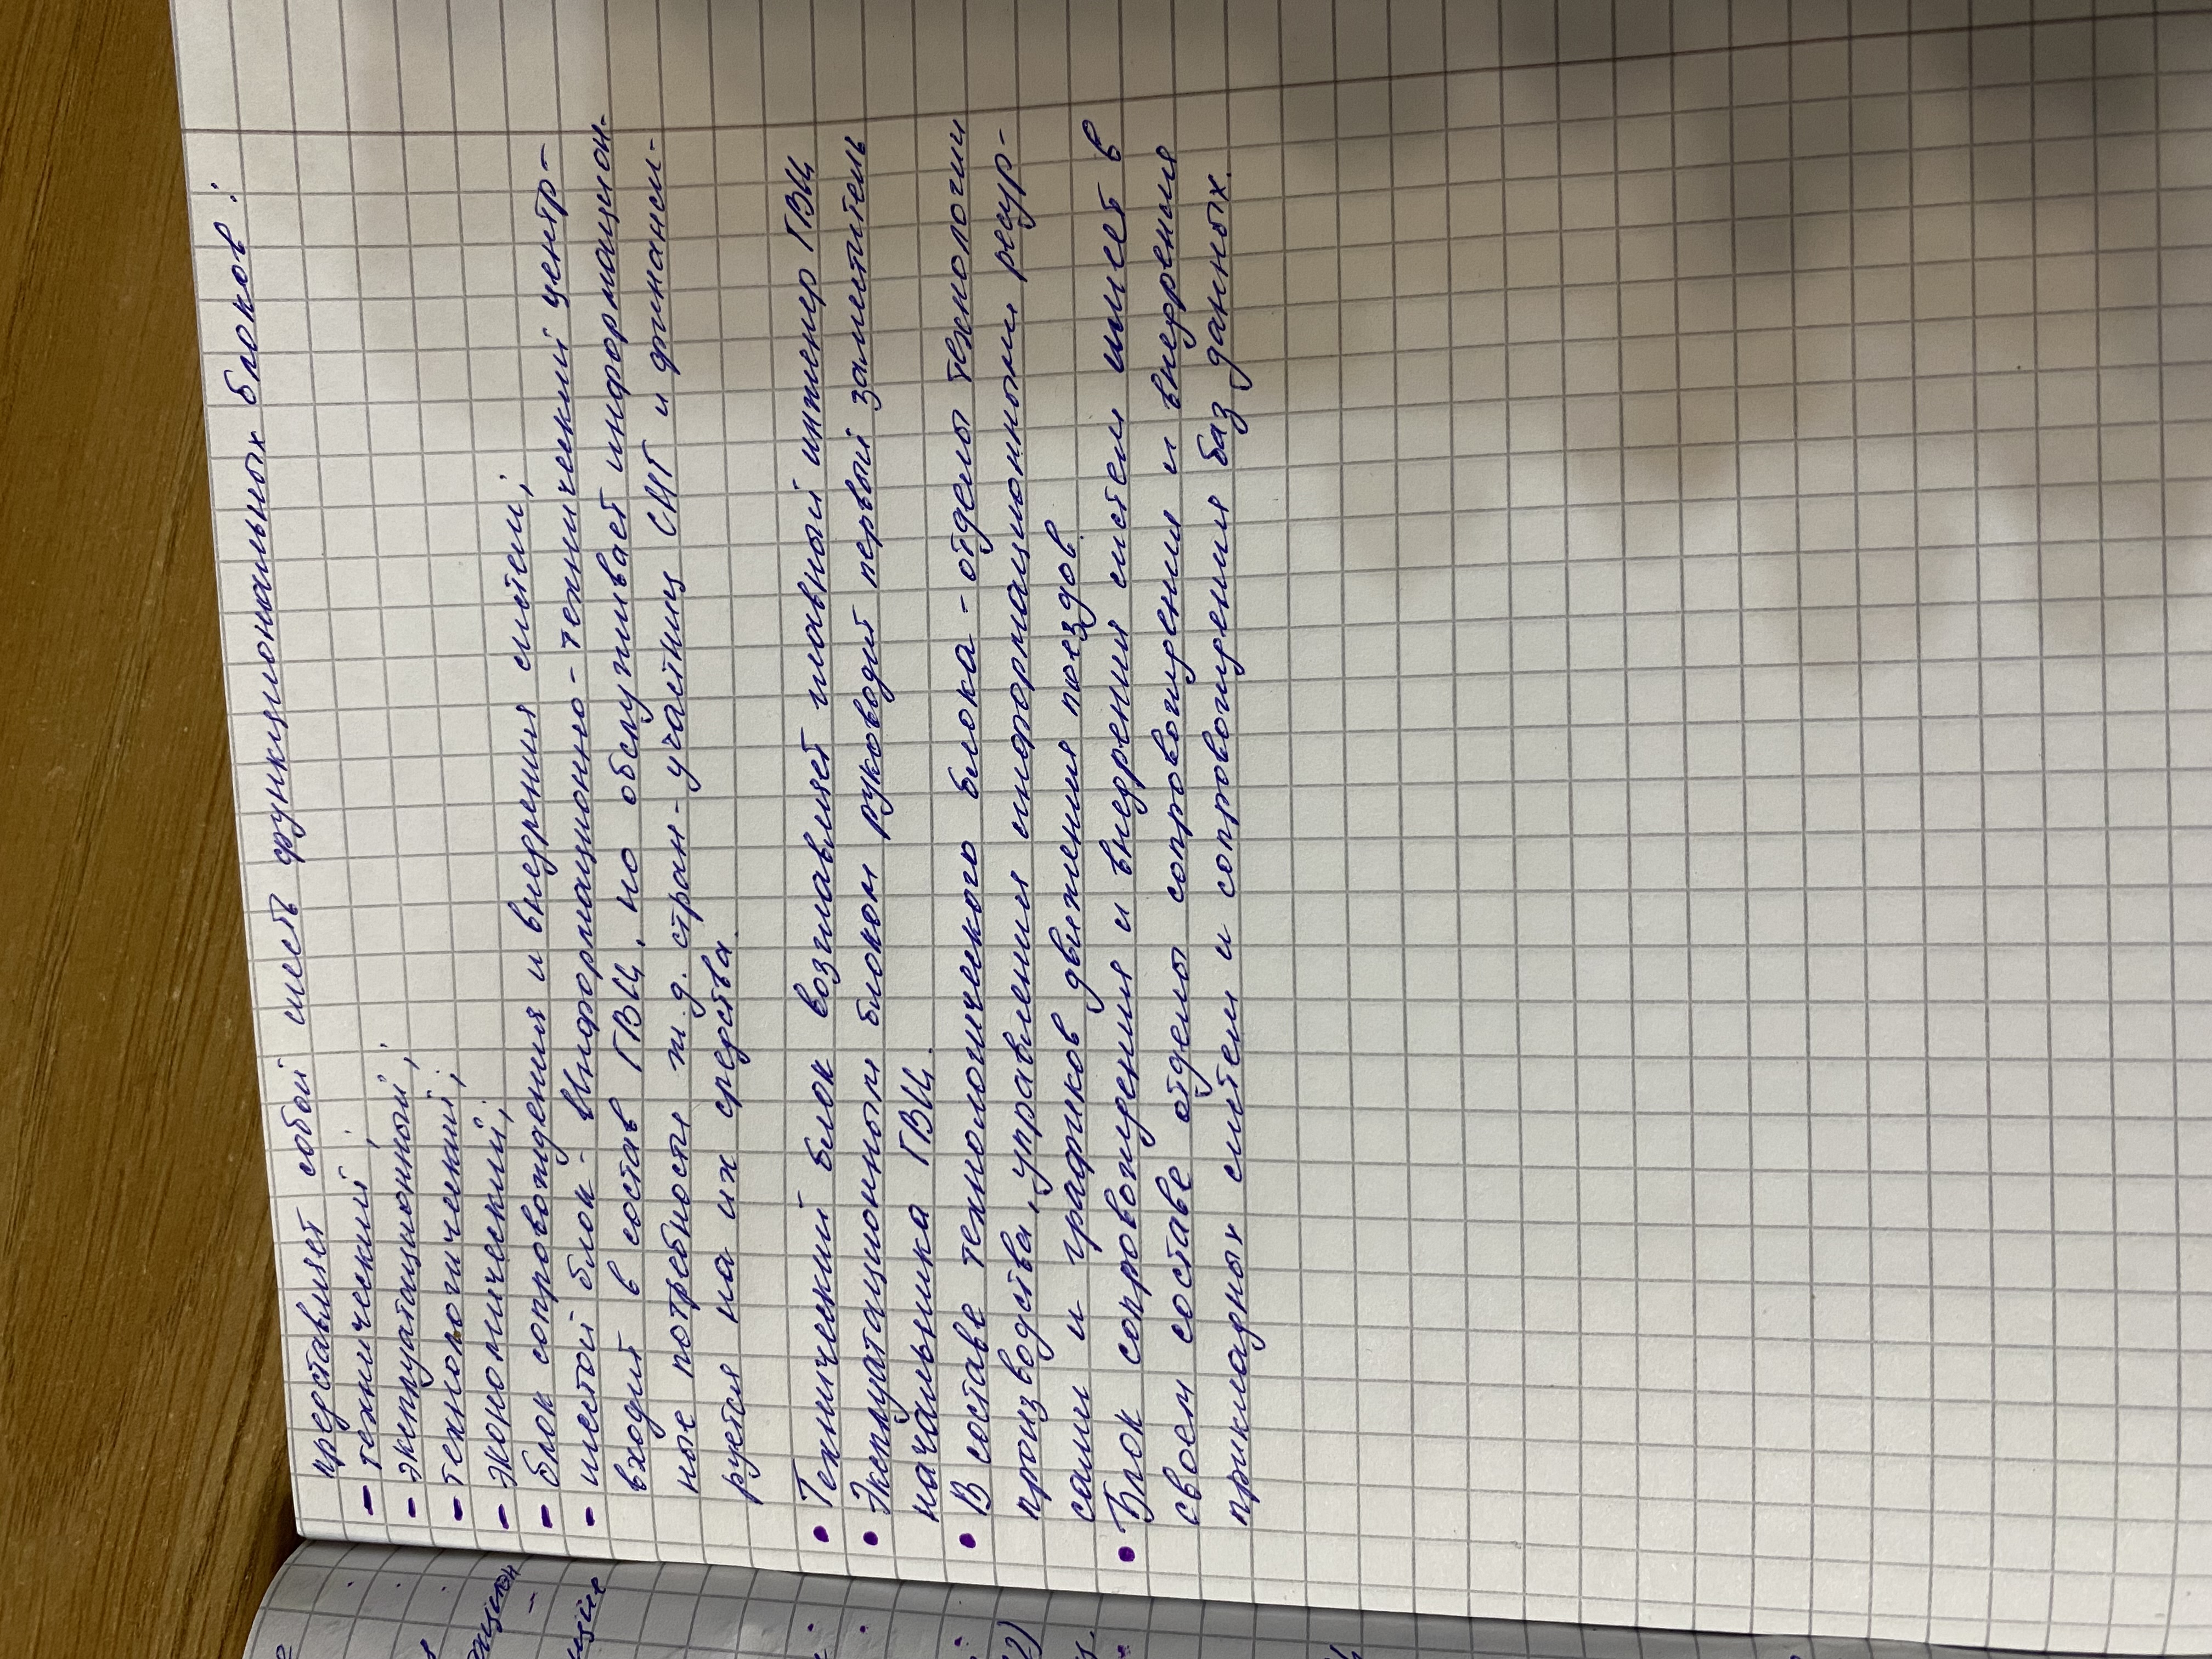 представляет собой шесть функциональных блоков:
- технический;
- эксплуатационный;
- технологический;
- экономический;
- блок сопровождения и внедрения систем;
- шестой блок - Информационно-технический центр-
входит в состав ГВЦ, но обслуживает информацион-
ные потребности ж.д. стран-участниц СНГ и финанси-
руется на их средства.
• Технический блок возглавляет главный инженер ГВЦ
• Эксплуатационным блоком руководит первый заместитель
начальника ГВЦ.
• В составе технологического блока - отделы технологии
производства, управления информационными ресур-
сами и графиков движения поездов.
• Блок сопровождения и внедрения систем имеет в
своем составе отделы сопровождения и внедрения
прикладных систем и сопровождения баз данных.